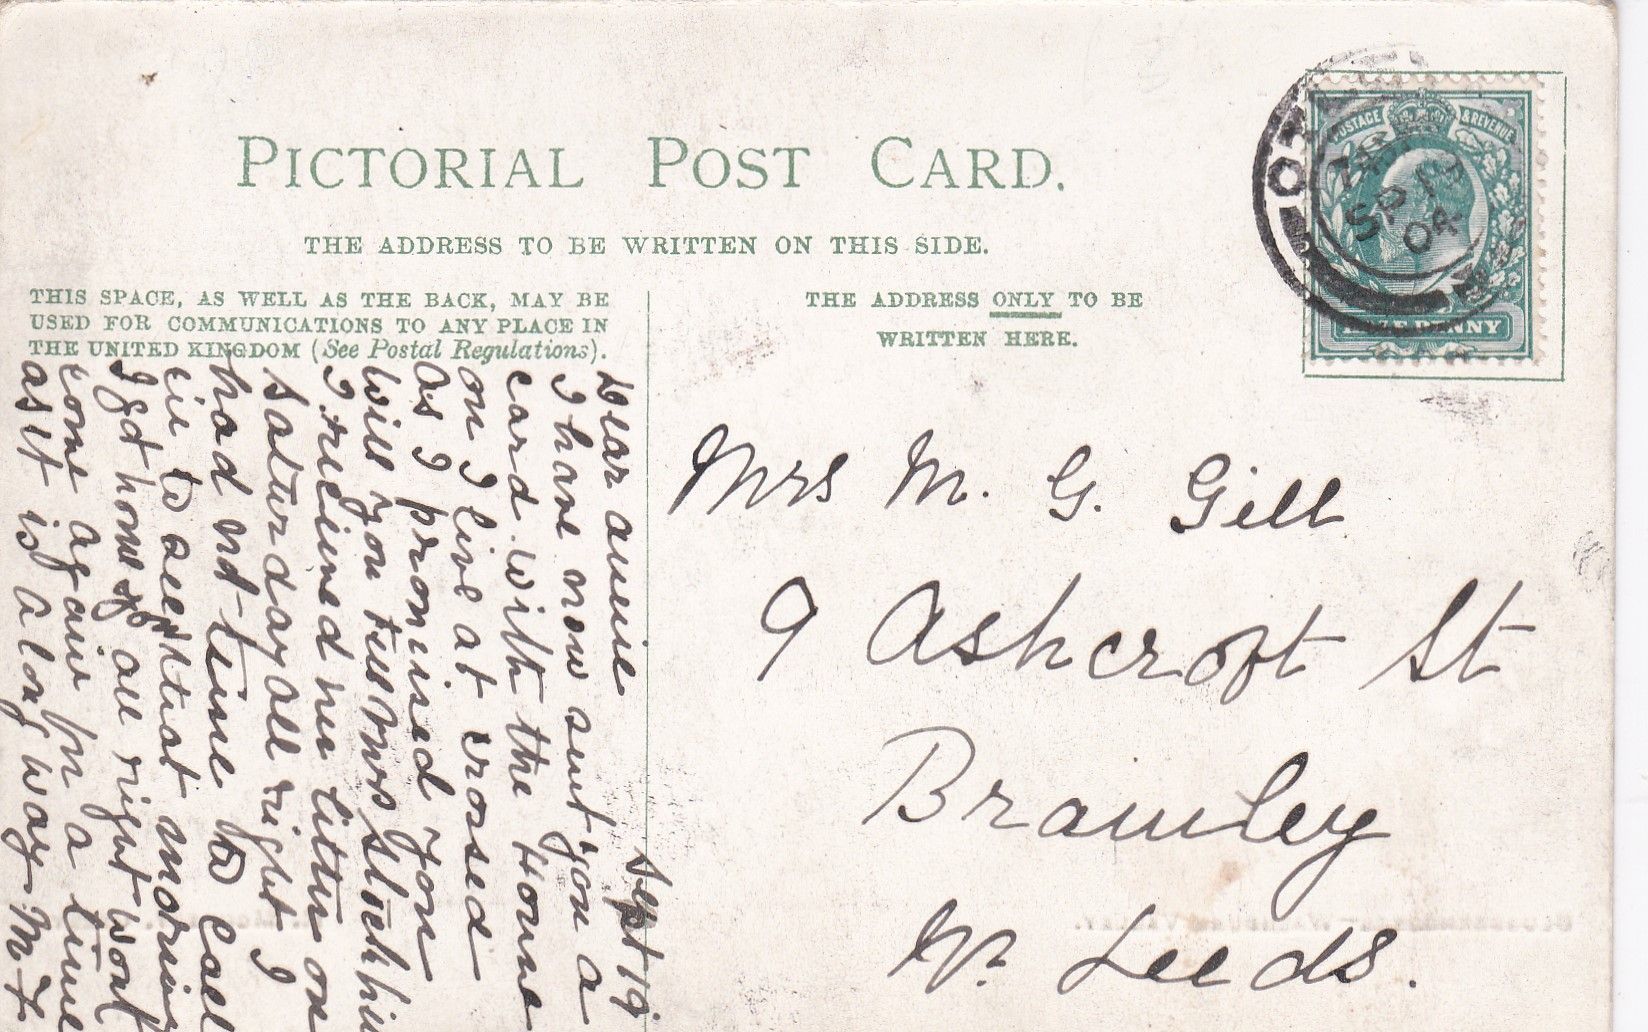 PICTORIAL POST CARD.
THE ADDRESS TO BE WRITTEN ON THIS SIDE.
THIS SPACE, AS WELL AS THE BACK, MAY BE
USED FOR COMMUNICATIONS TO ANY PLACE IN
THE UNITED KINGDOM (See Postal Regulations).
THE ADDRESS ONLY TO BE
WRITTEN HERE.
POSTAGE & REVENUE
HALF PENNY
SP
Sept 19
Dear annie
I have now sent you a
card with the House
on I live at crossed
As I promised you
Will you tell Mrs
I recieved her letter on
Saturday all right I
had not time to Call
in to see that morning
I got home all right wont
come again for a time
as it is a long way M.T
Mrs M. G. Gill
9 Ashcroft St
Bramley
Nr Leeds.